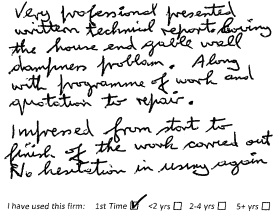 Very professional presented
written technical report having
the house end gable wall
dampness problem. Along
with programme of work and
quotation to repair.
Impressed from start to
finish of the work carried out
No hesitation in using again
I have used this firm: 1st Time ☑ <2 yrs ☐ 2-4 yrs ☐ 5+ yrs ☐